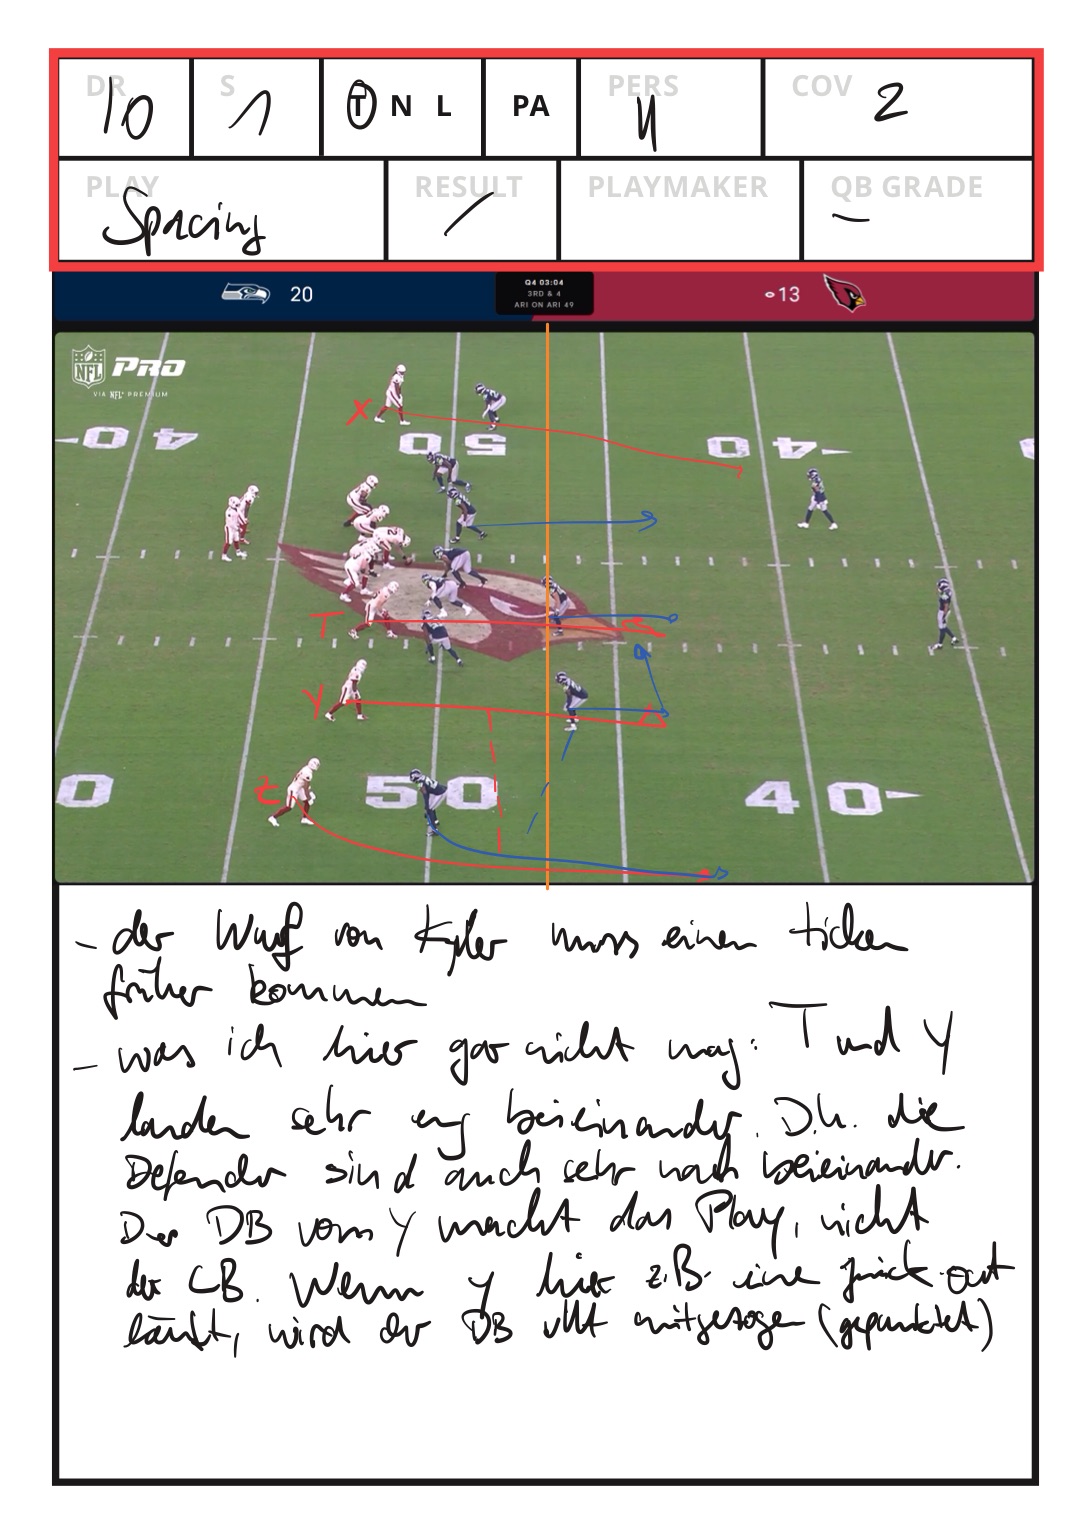 DR 10 S 1 T N L PA PERS 11 COV 2
PLAY Spacing RESULT / PLAYMAKER QB GRADE –
20 Q4 03:04 13
3RD & 4
ARI ON ARI 49
NFL PRO
VIA NFL+ PREMIUM
X
40 50 40
T
Y
Z
0 50 40
- der Wurf von Kyler muss einen ticken
früher kommen
- was ich hier gar nicht mag: T und Y
landen sehr eng beieinander. D.h. die
Defender sind auch sehr nah beieinander.
Der DB vom Y macht das Play, nicht
der CB. Wenn Y hier z.B. eine quick-out
läuft, wird der DB vllt mitgezogen (gepunktet)